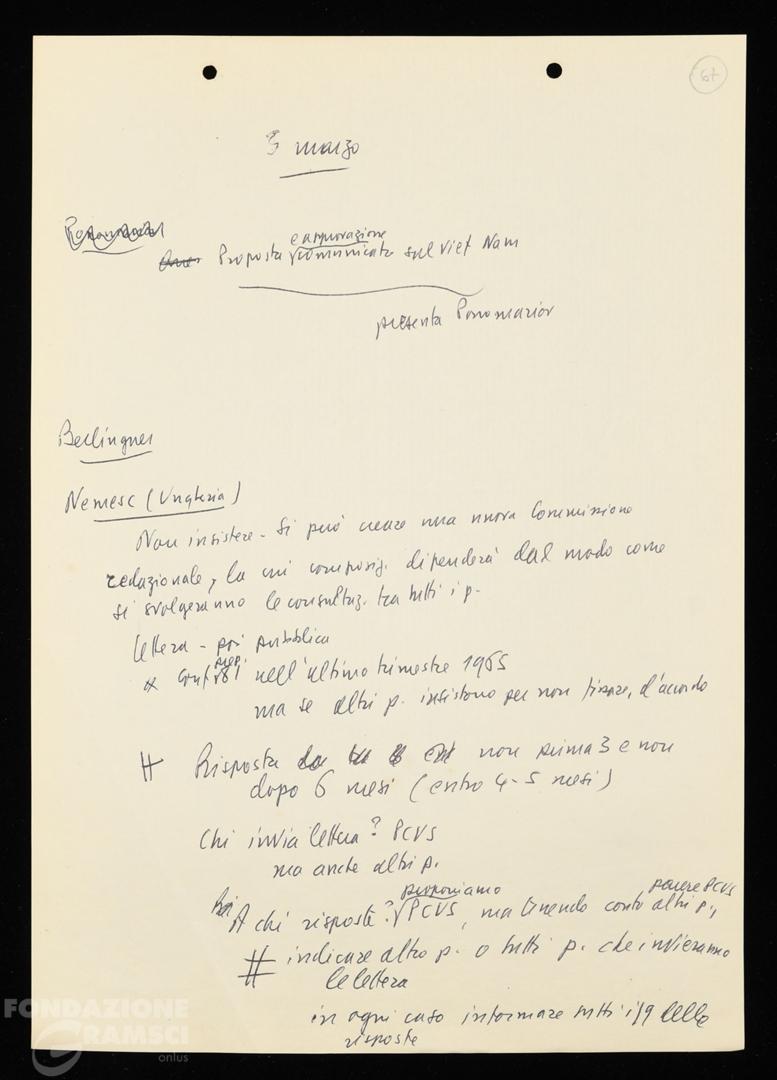 67
3 marzo
Ponomariov
Proposta e approvazione comunicato sul Viet Nam
presenta Ponomariov
Berlinguer
Nemesc (Ungheria)
Non insistere - Si può creare una nuova Commissione
redazionale, la cui composiz. dipenderà dal modo come
si svolgeranno le consultaz. tra tutti i p.
lettera - poi pubblica
Conf. prep. nell'ultimo trimestre 1965
ma se altri p. insistono per non fissare, d'accordo
Risposta non prima 3 e non
dopo 6 mesi (entro 4-5 mesi)
Chi invia lettera? PCUS
ma anche altri p.
A chi risposte? proponiamo PCUS, ma tenendo conto parere PCUS altri p.,
indicare altro p. o tutti p. che invieranno
le lettera
in ogni caso informare tutti i 19 delle
risposte
FONDAZIONE
GRAMSCI
onlus